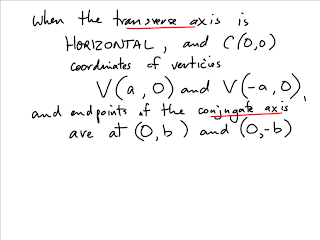 When the transverse axis is
HORIZONTAL, and C(0,0)
coordinates of verticies
V(a, 0) and V(-a, 0),
and endpoints of the conjugate axis
are at (0, b) and (0,-b)